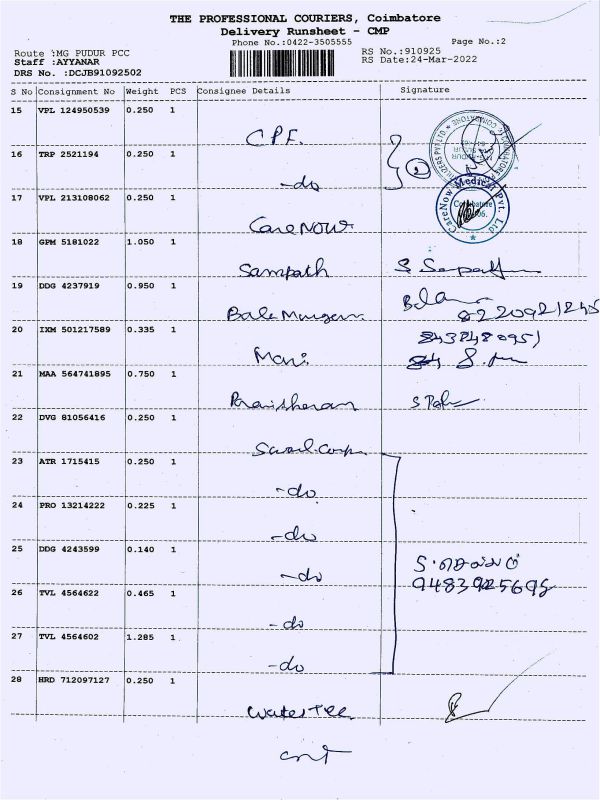 THE PROFESSIONAL COURIERS, Coimbatore
Delivery Runsheet - CMP
Phone No.:0422-3505555
Page No.:2
Route :MG PUDUR PCC
RS No.:910925
Staff :AYYANAR
RS Date:24-Mar-2022
DRS No. :DCJB91092502
S No Consignment No Weight PCS Consignee Details Signature
15 VPL 124950539 0.250 1 C.P.F.
16 TRP 2521194 0.250 1 -do
2
17 VPL 213108062 0.250 1 CareNow
CareNow Medical Pvt. Ltd
Coimbatore
18 GPM 5181022 1.050 1 Sampath
19 DDG 4237919 0.950 1 Bala Murugan
8220921245
20 IXM 501217589 0.335 1 Mari
8438480951
21 MAA 564741895 0.750 1
22 DVG 81056416 0.250 1
23 ATR 1715415 0.250 1 -do
24 PRO 13214222 0.225 1 -do
25 DDG 4243599 0.140 1 -do
26 TVL 4564622 0.465 1 -do
27 TVL 4564602 1.285 1 -do
28 HRD 712097127 0.250 1 Water Tec